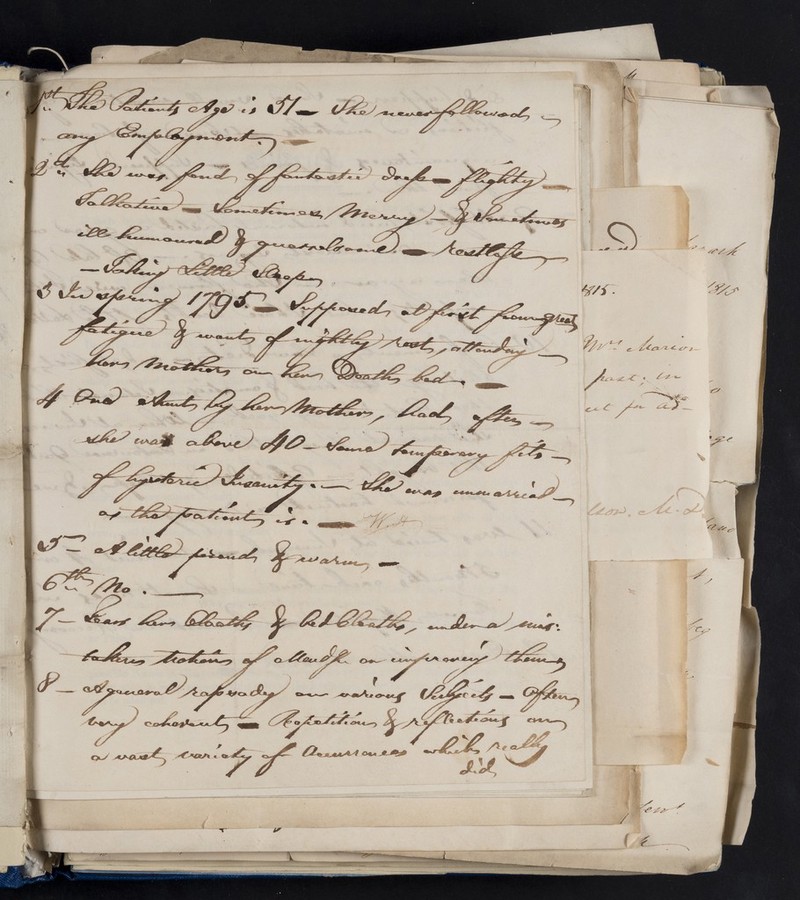 1st The Patients Age is 51 – She never followed
any Employment. –
2d She was fond of fantastic dress – flighty –
Talkative – Sometimes Merry – & Sometimes
ill humoured & quarrelsome. – restless –
– Taking Little Sleep
3 In spring 1795. – Supposed at first from great
fatigue & want of nightly rest, attending –
her Mother on her Death bed. –
4 One Aunt by her Mother, had, after –
she was above 40 – some temporary fits –
of hysteric Insanity. – She was unmarried –
as the patient is. –
5 – A little proud & warm –
6th No. –
7 – Tears her Cloaths & bed Cloaths, under a mis:
taken notion of Mending or improving them
8 – A general rapsody on various Subjects – often
very coherent – Repetitions & reflections on
a vast variety of Occurrances which really
did
1815.
1815
Mrs Marion
past; in
M.D.